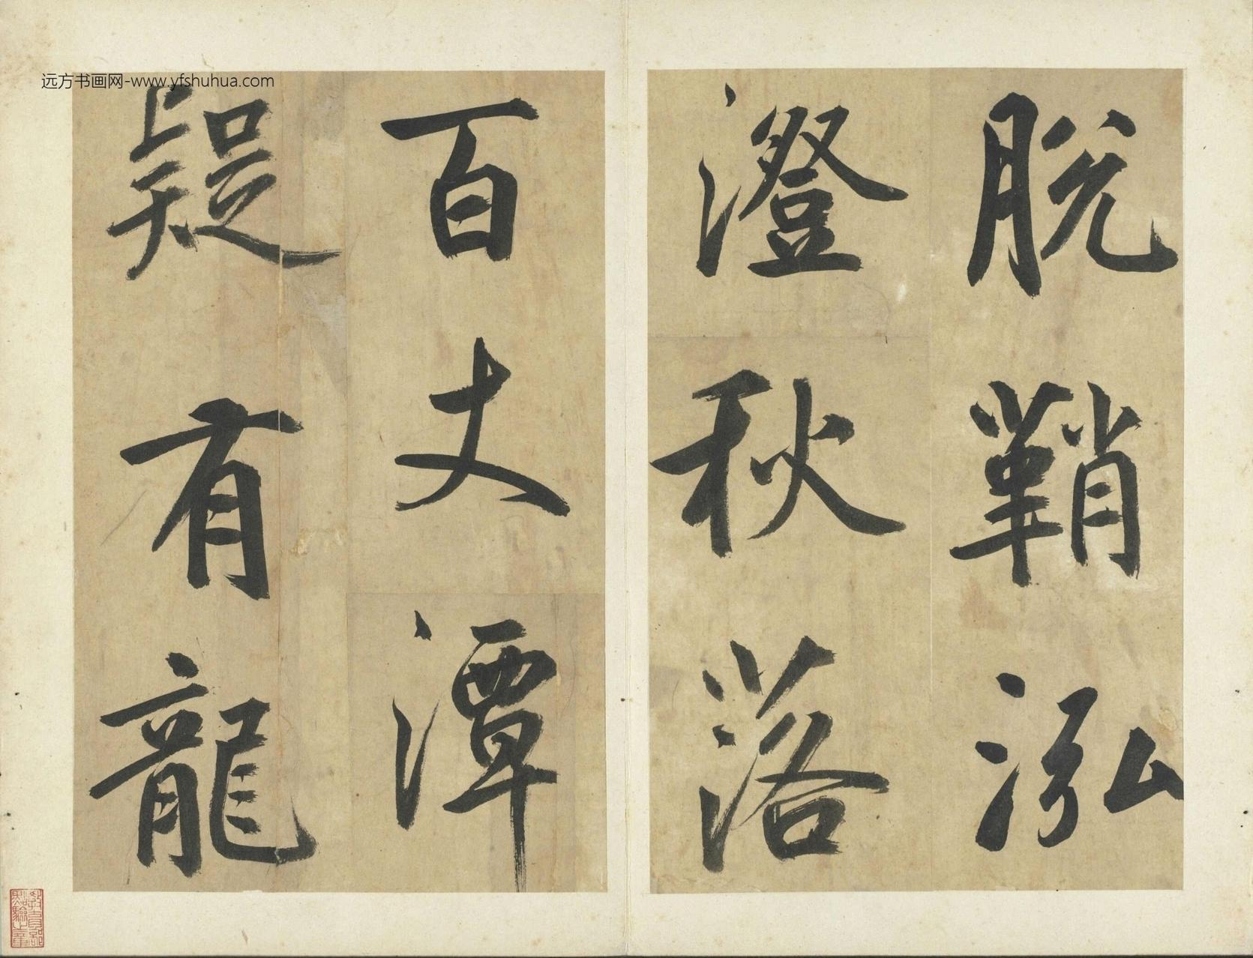 脱鞘泓
澄秋落
百丈潭
疑有龍
远方书画网-www.yfshuhua.com